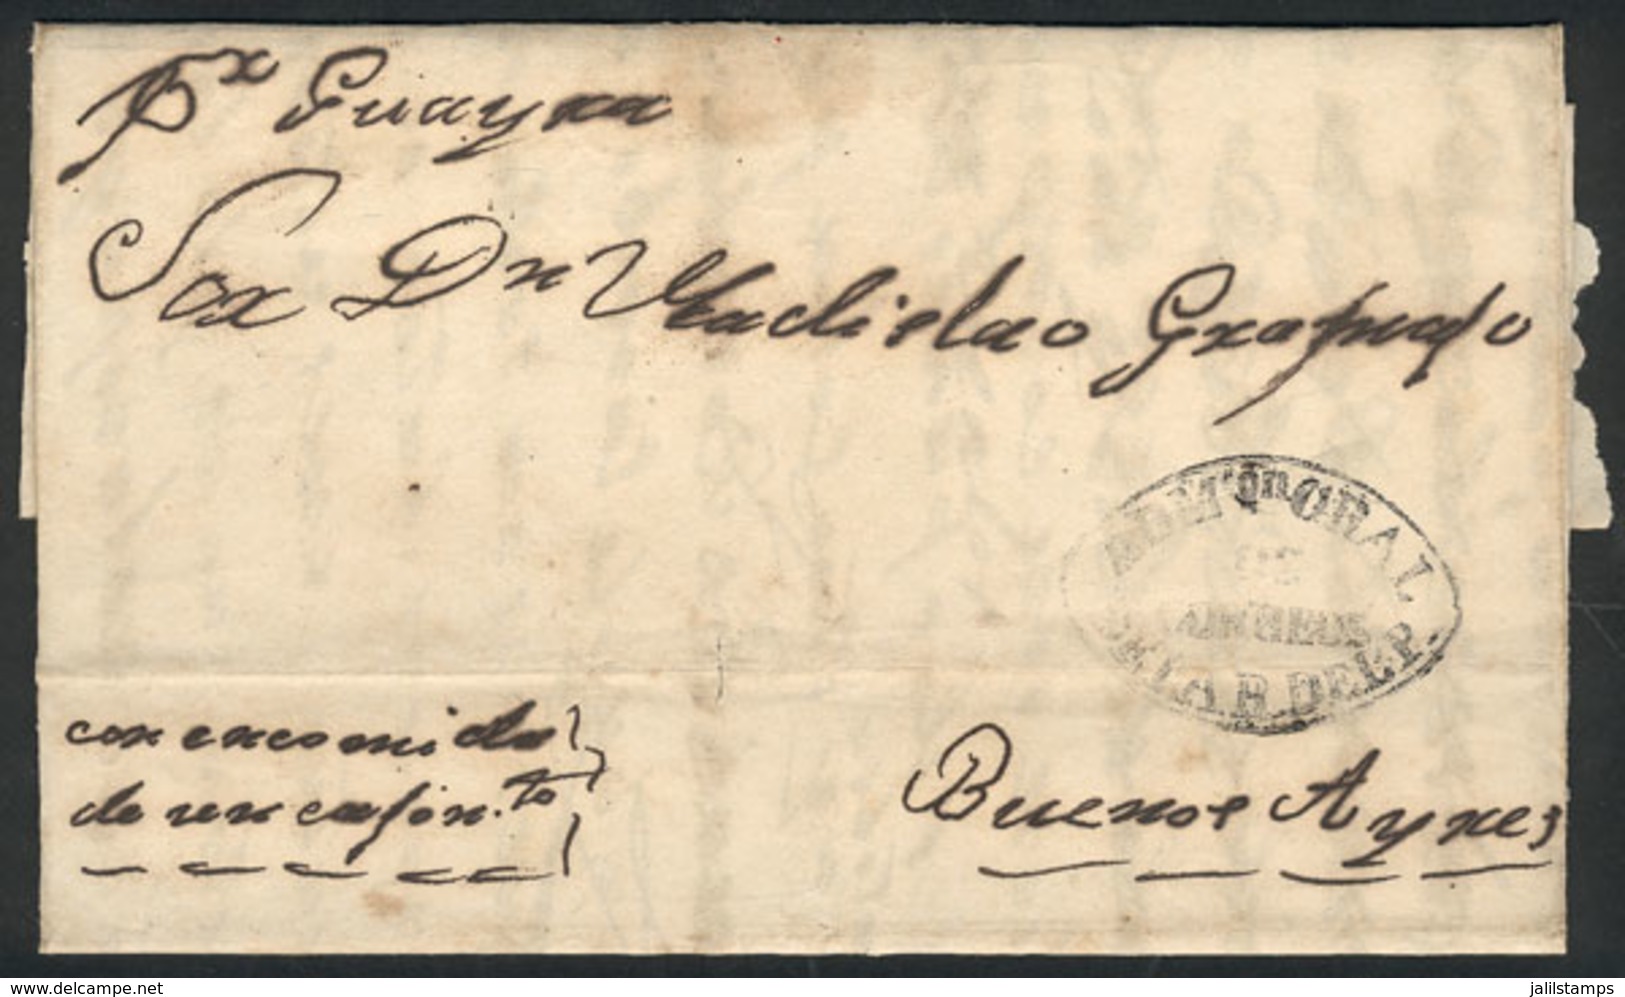 Pr Guayra
Sor Dn Uladislao Granajo
ADMon GRAL
DE
CORREOS
DE LA R. DEL P.
con encomida
de un cajon.to
Buenos Ayres
www.delcampe.net
jalilstamps